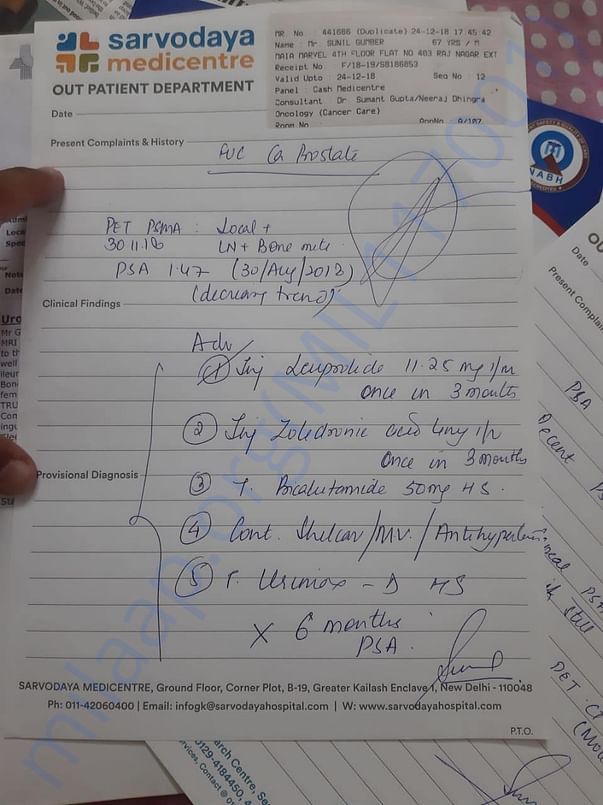 sarvodaya
medicentre
OUT PATIENT DEPARTMENT
MR No. 441686 (Duplicate) 24-12-18 17:45:42
Name : Mr. SUNIL GUMBER 67 YRS / M
MAIA MARVEL 4TH FLOOR FLAT NO 403 RAJ NAGAR EXT
Receipt No F/18-19/S8186853
Valid Upto : 24-12-18 Seq No : 12
Panel : Cash Medicentre
Consultant Dr Sumant Gupta/Neeraj Dhingra
Oncology (Cancer Care)
Room No
Date
Present Complaints & History
FUC Ca Prostate
PET PSMA : Local +
30 11 18 LN + Bone mets.
PSA 1.47 (30/Aug/2018)
(decreasing trend)
Clinical Findings
Adv
① Inj Leuprolide 11.25 mg i/m
once in 3 months
② Inj Zoledronic acid 4mg i/v
once in 3 months
Provisional Diagnosis
③ T. Bicalutamide 50mg HS.
④ Cont. Shelcal/MV./Antihypertensi
⑤ T. Urimax - D HS
X 6 months
PSA.
SARVODAYA MEDICENTRE, Ground Floor, Corner Plot, B-19, Greater Kailash Enclave 1, New Delhi - 110048
Ph: 011-42060400 | Email: infogk@sarvodayahospital.com | W: www.sarvodayahospital.com
P.T.O.
NABH
PSA
Decent
still
PET CT
0129-4184450
milaap.org/MIL